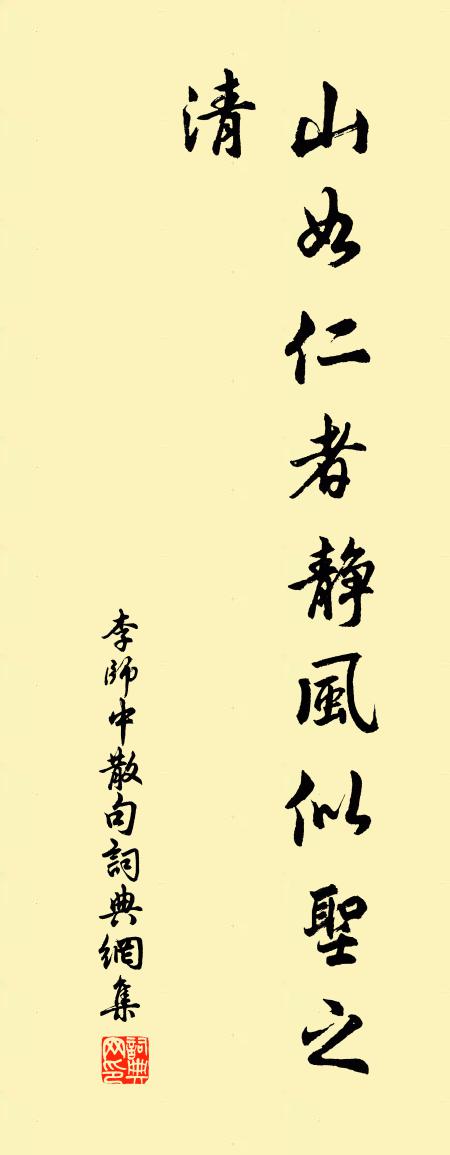 山如仁者靜風似聖之
清
李師中散句詞典網集
詞典网印